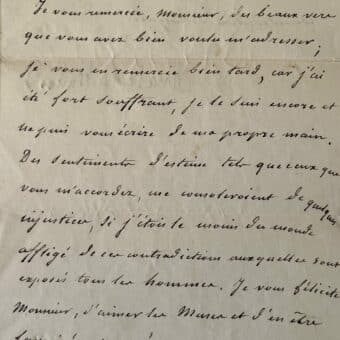 Je vous remercie, Monsieur, des beaux vers
que vous avez bien voulu m'adresser;
je vous en remercie bien tard, car j'ai
été fort souffrant, je le suis encore et
ne puis vous écrire de ma propre main.
Des sentiments d'estime tels que ceux que
vous m'accordez, me consoleroient de quelques
injustices, si j'étois le moins du monde
affligé de ces contradictions auxquelles sont
exposés tous les hommes. Je vous félicite
Monsieur, d'aimer les Muses et d'en être